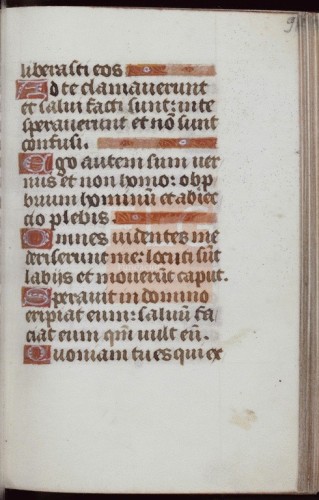 liberasti eos
Ad te clamauerunt
et salui facti sunt: in te
sperauerunt et nō sunt
confusi.
Ego autem sum uer
mis et non homo: obp
brium hominū et abiec
cio plebis.
Omnes uidentes me
deriserunt me: locuti sūt
labijs et mouerūt caput.
Sperauit in domino
eripiat eum: saluū fa
ciat eum qm̄ uult eū.
Quoniam tu es qui ex